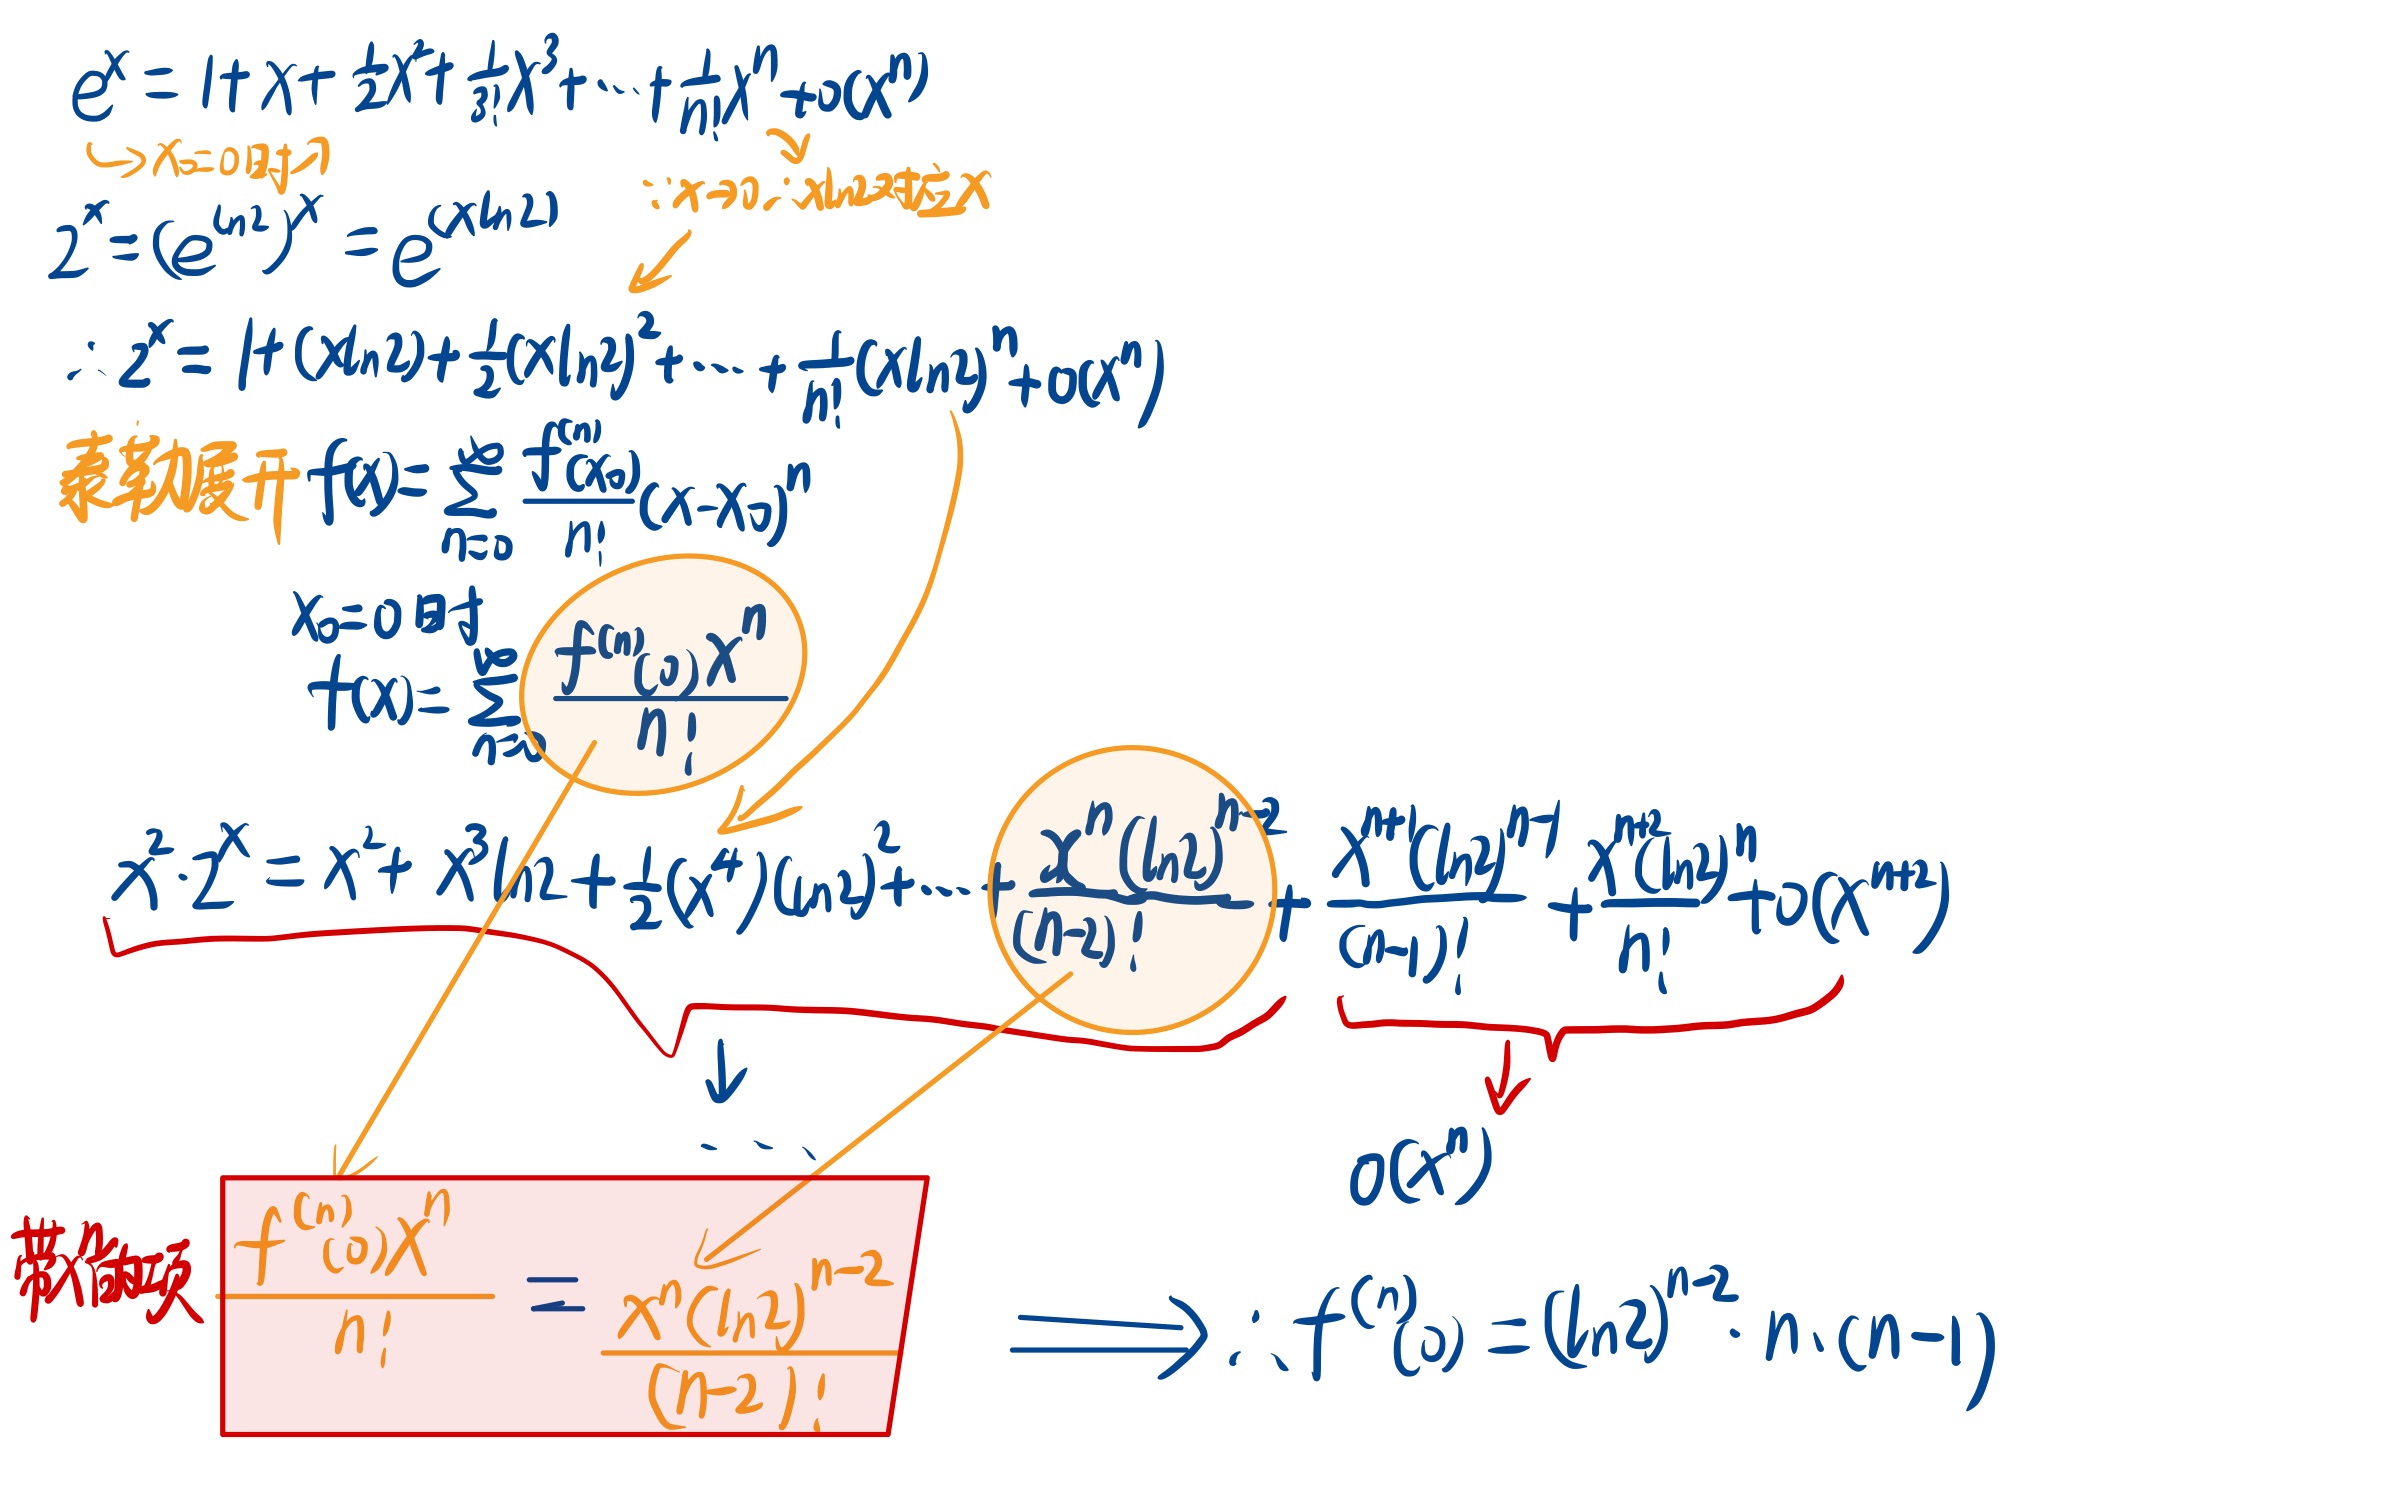 e^x = 1 + x + 1/2 x^2 + 1/3! x^3 + ··· + 1/n! x^n + o(x^n)
↳ x=0时
∵ x→0 ∴ xln2
2^x = (e^{ln2})^x = e^{xln2}
∴ 2^x = 1 + (xln2) + 1/2 (xln2)^2 + ··· + 1/n! (xln2)^n + o(x^n)
幂级数展开 f(x) = ∑_{n=0}^{∞} f^{(n)}(x_0)/n! (x-x_0)^n
x_0=0时
f(x) = ∑_{n=0}^{∞} f^{(n)}(0)x^n/n!
x^2·2^x = x^2 + x^3 ln2 + 1/2 (x^4)(ln2)^2 + ···· + x^n(ln2)^{n-2}/(n-2)! + x^{n+1}(ln2)^{n-1}/(n-1)! + x^{n+2}(ln2)^n/n! + o(x^{n+2})
····
o(x^n)
f^{(n)}(0)x^n/n! = x^n(ln2)^{n-2}/(n-2)! ⟹ ∴ f^{(n)}(0) = (ln2)^{n-2}·n·(n-1)